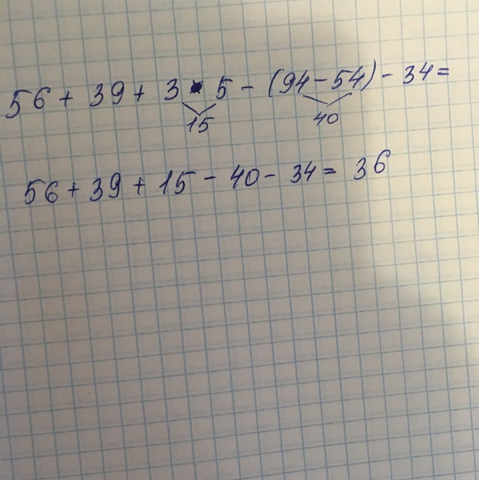 56 + 39 + 3 · 5 - (94 - 54) - 34 =
15 40
56 + 39 + 15 - 40 - 34 = 36